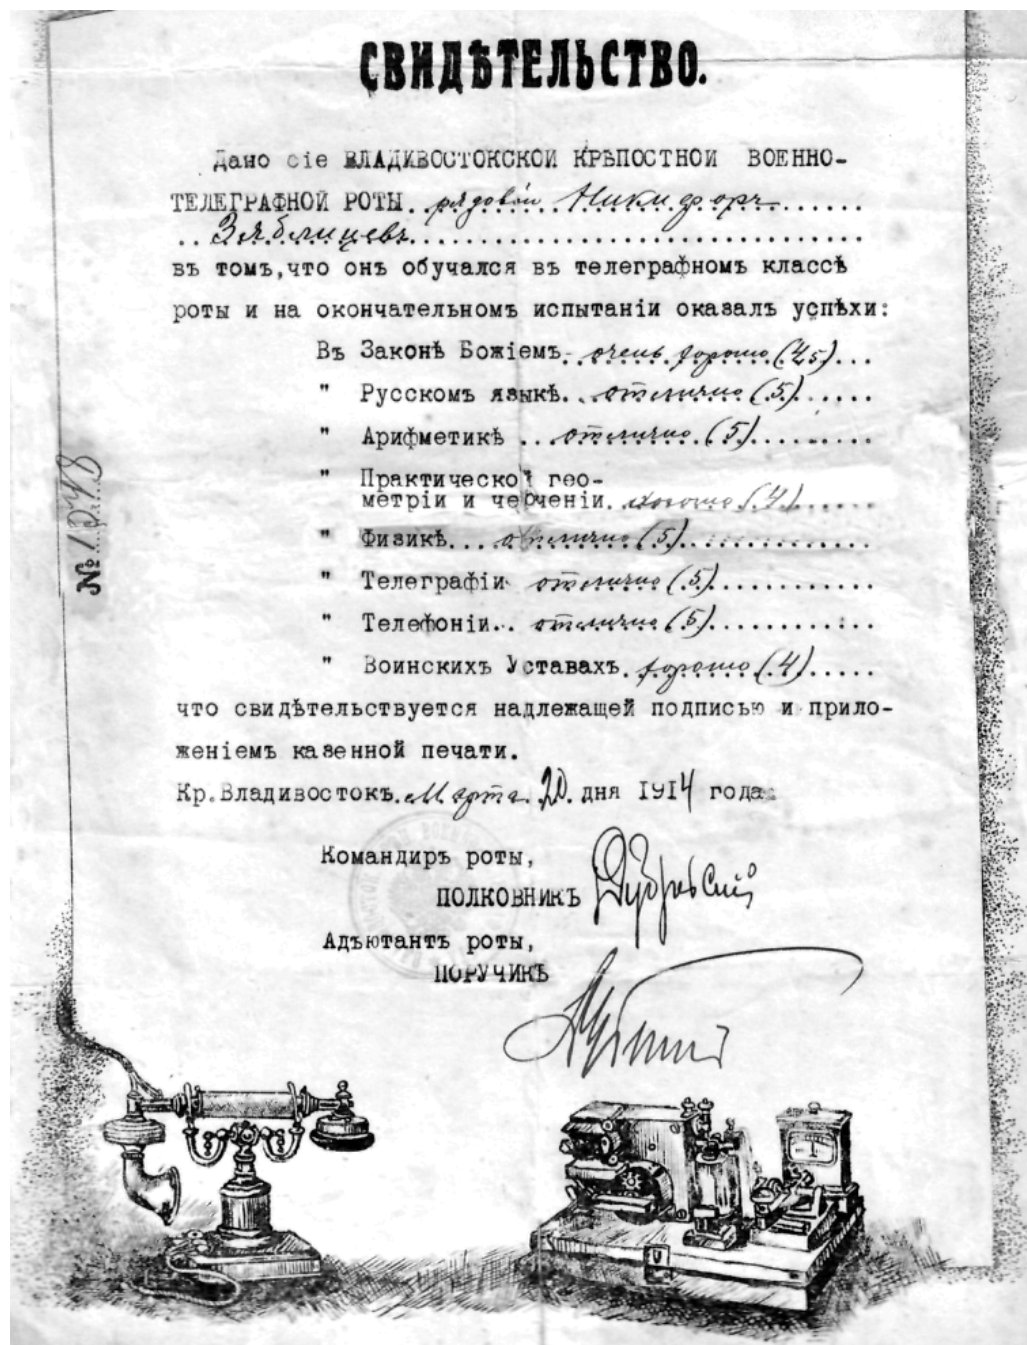 СВИДѢТЕЛЬСТВО.
Дано сіе ВЛАДИВОСТОКСКОЙ КРѢПОСТНОЙ ВОЕННО-
ТЕЛЕГРАФНОЙ РОТЫ рядовой Никифоръ
Зяблицевъ
въ томъ, что онъ обучался въ телеграфномъ классѣ
роты и на окончательномъ испытаніи оказалъ успѣхи:
Въ Законѣ Божіемъ очень хорошо (4,5)
" Русскомъ языкѣ отлично (5)
" Арифметикѣ отлично (5)
" Практической гео-
метріи и черченіи хорошо (4)
" Физикѣ отлично (5)
" Телеграфіи отлично (5)
" Телефоніи отлично (5)
" Воинскихъ Уставахъ хорошо (4)
что свидѣтельствуется надлежащей подписью и прило-
женіемъ казенной печати.
Кр. Владивостокъ. Марта 20 дня 1914 года
Командиръ роты,
ПОЛКОВНИКЪ Дубровскій
Адъютантъ роты,
ПОРУЧИКЪ
№